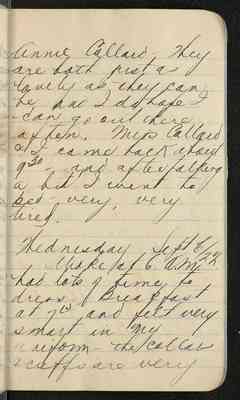 Annie Callard. They
are both just as
lovely as they can
be but I do hope I
can go out there
again. Miss Callard
& I came back about
9³⁰ and after talking
a bit I went to
bed very, very
tired.
Wednesday Sept 6/22
Woke at 6 A.M.
had lots of time to
dress. Breakfast
at 7¹⁵ and felt very
smart in my
uniform - the collar
& cuffs are very